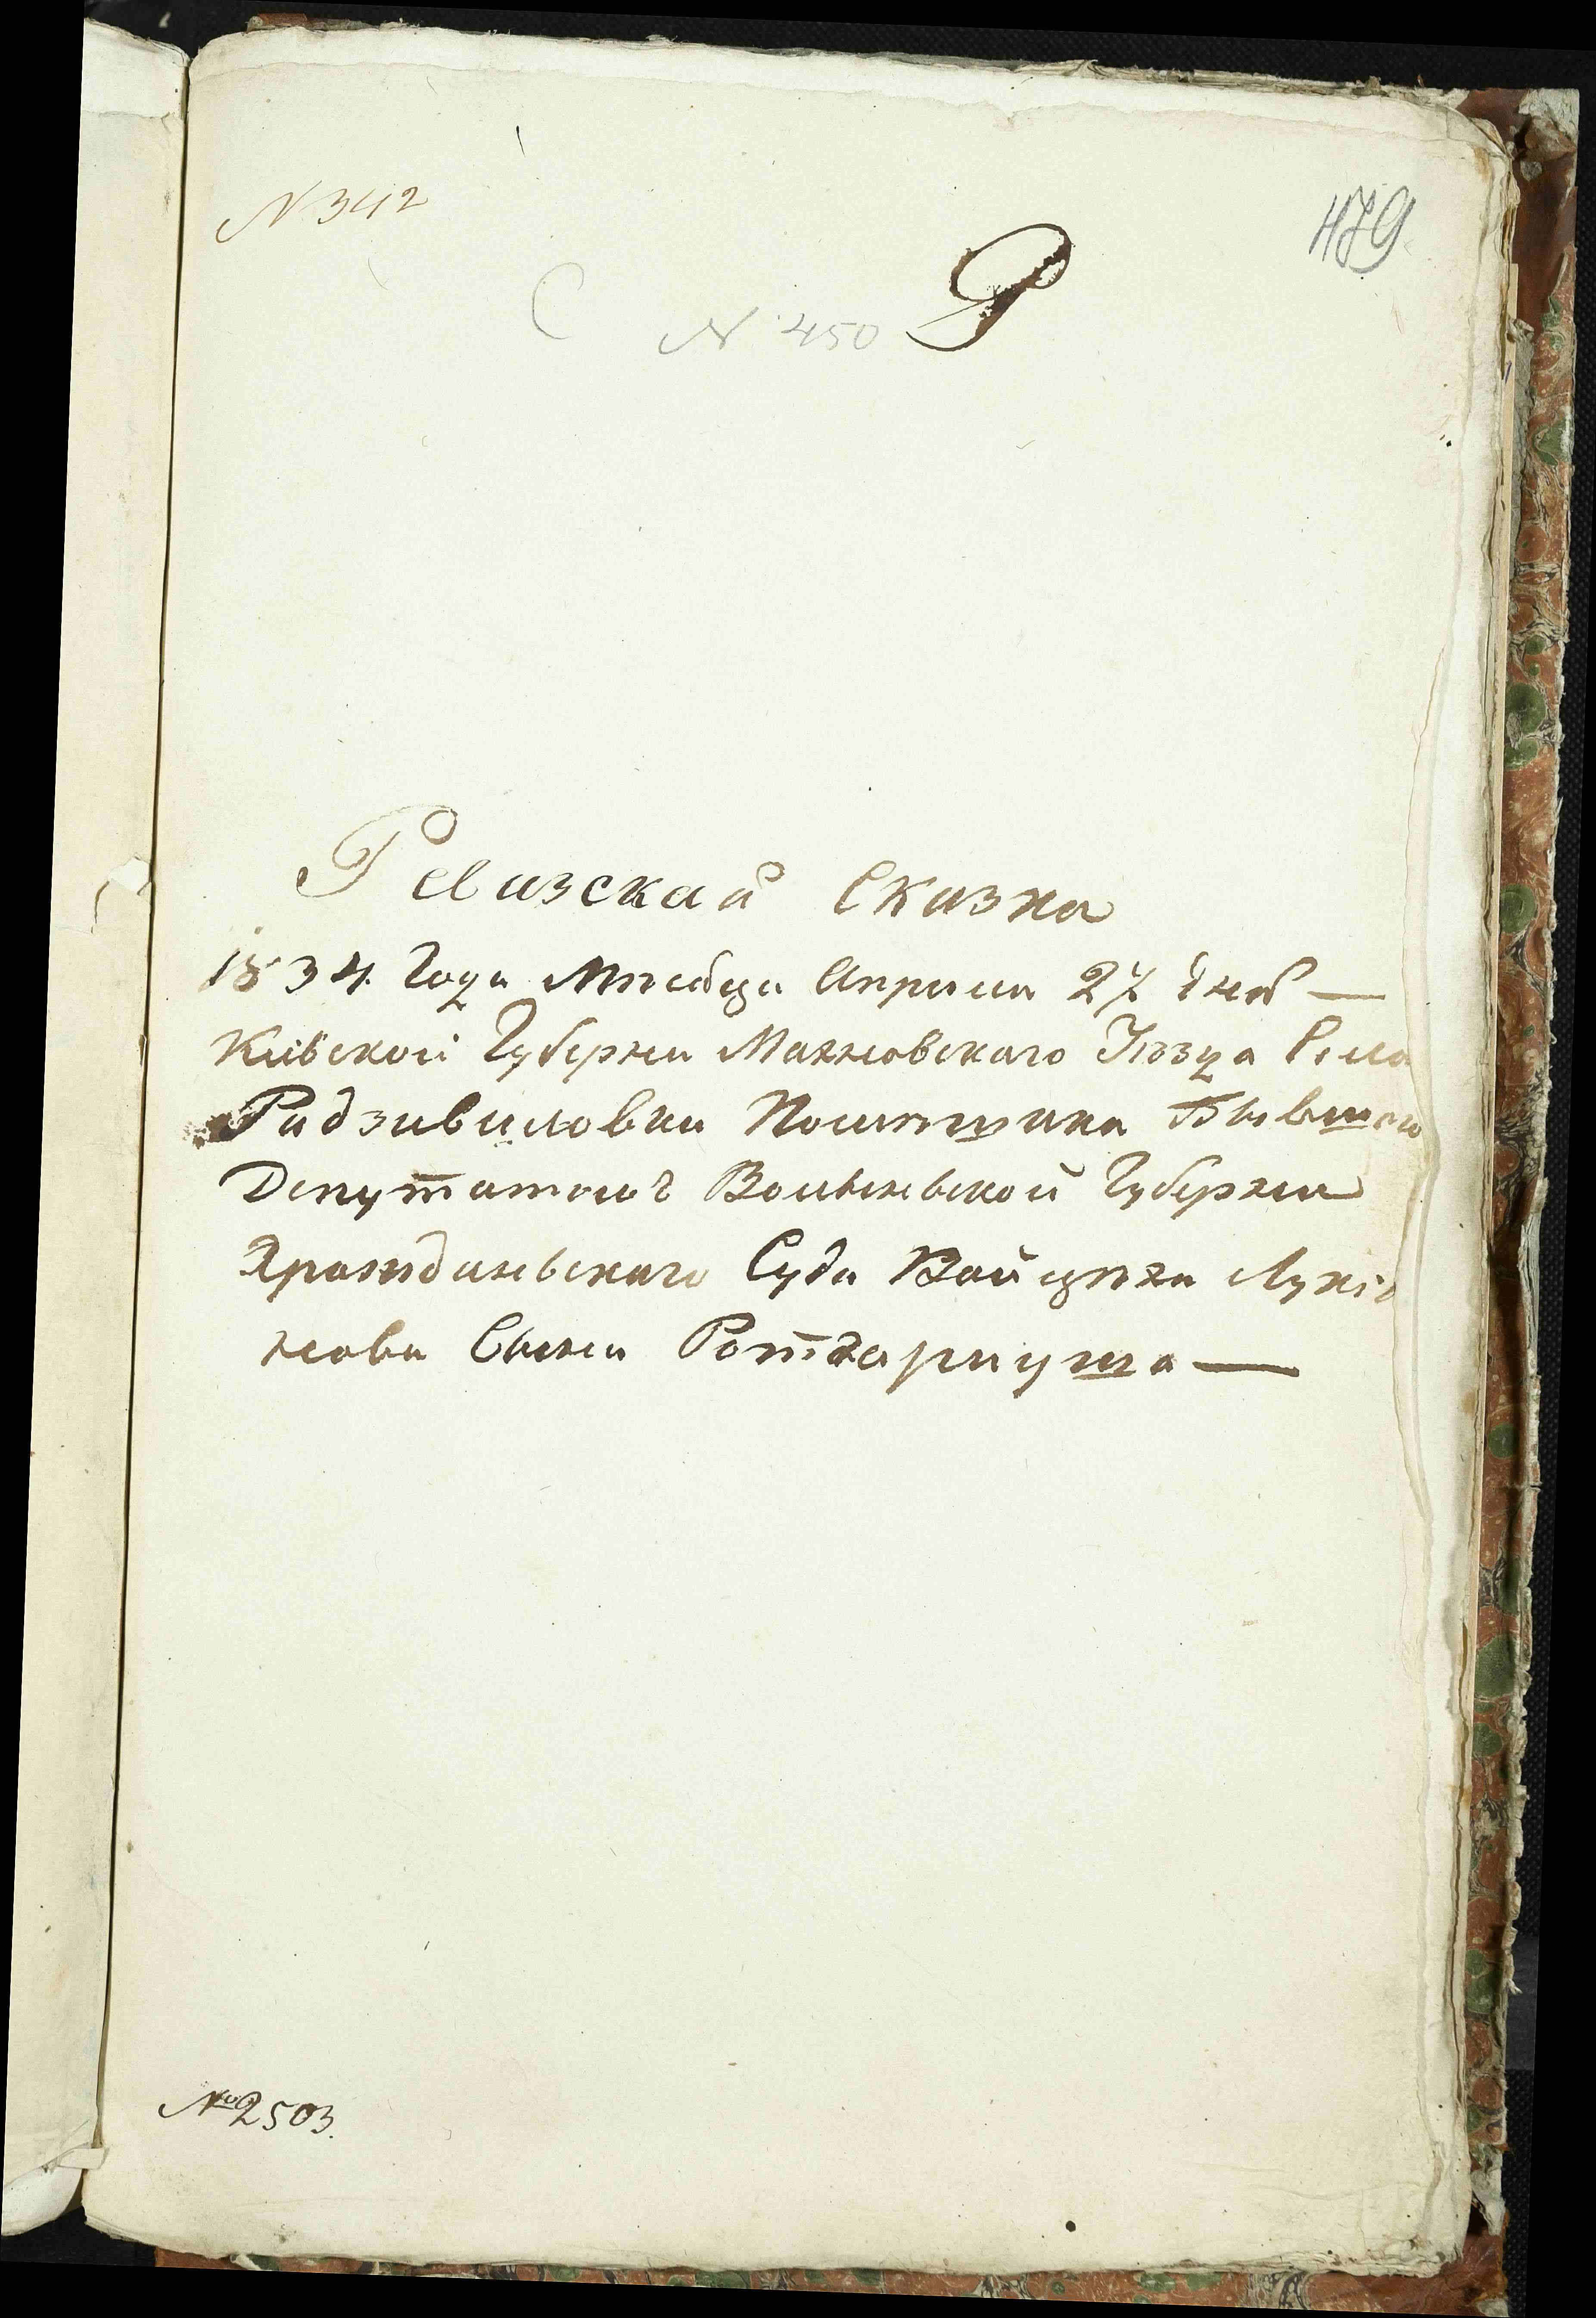 N 342
479
С N 450 Р
Ревизская Сказка
1834. Года Мѣсяца Апрѣля 27 дня —
Кіевской Губерніи Махновскаго Уѣзда Села
Радзивиловки Помѣщика Бывшаго
Депутатомъ Волынской Губерніи
Гражданьскаго Суда Войцѣха Лукія
нова Сына Ротгаріуша —
№ 2503.